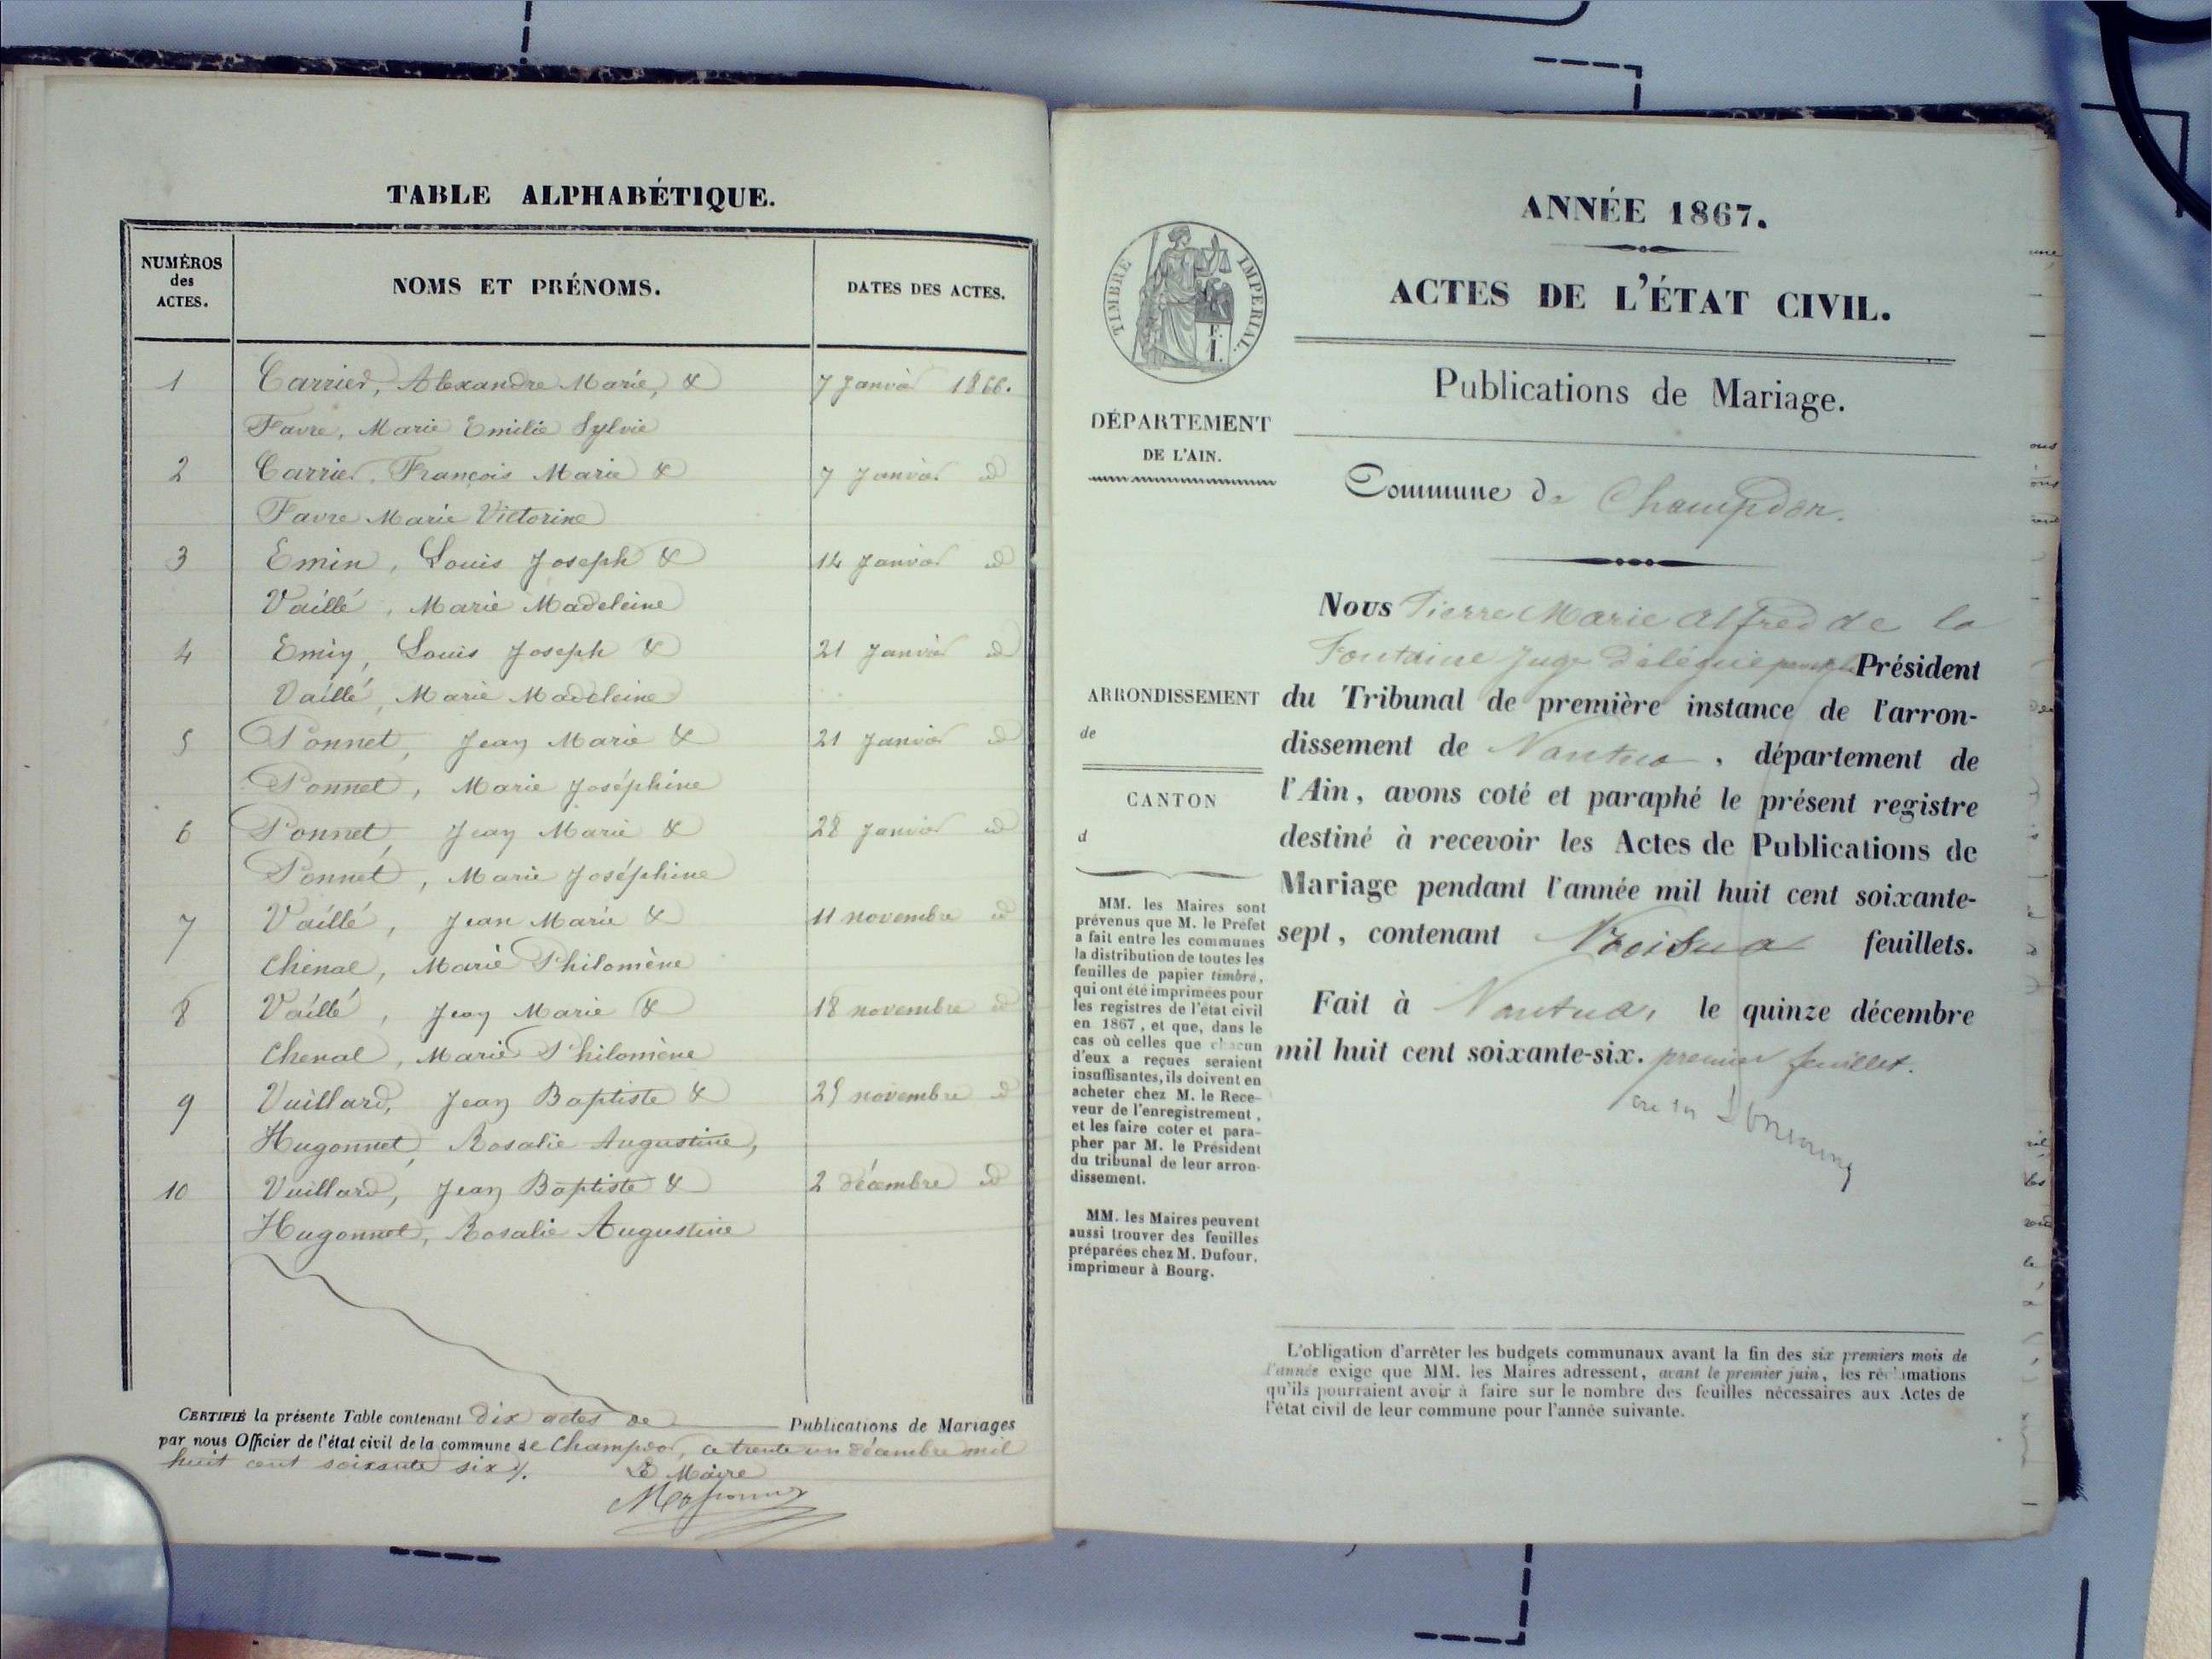 TABLE ALPHABÉTIQUE.
NUMÉROS des ACTES.
NOMS ET PRÉNOMS.
DATES DES ACTES.
1 Carrier, Alexandre Marie, & 7 Janvier 1866.
Favre, Marie Emilie Sylvie
2 Carrier, François Marie & 7 Janvier id
Favre Marie Victorine
3 Emin, Louis Joseph & 14 Janvier id
Vaillé, Marie Madeleine
4 Emin, Louis Joseph & 21 Janvier id
Vaillé, Marie Madeleine
5 Ponnet, Jean Marie & 21 Janvier id
Ponnet, Marie Joséphine
6 Ponnet, Jean Marie & 28 Janvier id
Ponnet, Marie Joséphine
7 Vaillé, Jean Marie & 11 novembre id
Chenal, Marie Philomène
8 Vaillé, Jean Marie & 18 novembre id
Chenal, Marie Philomène
9 Vuillard, Jean Baptiste & 25 novembre id
Hugonnet, Rosalie Augustine,
10 Vuillard, Jean Baptiste & 2 décembre id
Hugonnet, Rosalie Augustine
CERTIFIÉ la présente Table contenant dix actes de Publications de Mariages
par nous Officier de l'état civil de la commune de Champdor, ce trente un décembre mil
huit cent soixante six.
Le Maire
ANNÉE 1867.
ACTES DE L'ÉTAT CIVIL.
Publications de Mariage.
TIMBRE IMPERIAL.
DÉPARTEMENT
DE L'AIN.
Commune de Champdor.
ARRONDISSEMENT
de
CANTON
d
Nous Pierre Marie Alfred de la
Fontaine Juge délégué Président
du Tribunal de première instance de l'arron-
dissement de Nantua, département de
l'Ain, avons coté et paraphé le présent registre
destiné à recevoir les Actes de Publications de
Mariage pendant l'année mil huit cent soixante-
sept, contenant feuillets.
Fait à Nantua, le quinze décembre
mil huit cent soixante-six. premier feuillet.
MM. les Maires sont
prévenus que M. le Préfet
a fait entre les communes
la distribution de toutes les
feuilles de papier timbré,
qui ont été imprimées pour
les registres de l'état civil
en 1867, et que, dans le
cas où celles que chacun
d'eux a reçues seraient
insuffisantes, ils doivent en
acheter chez M. le Rece-
veur de l'enregistrement,
et les faire coter et para-
pher par M. le Président
du tribunal de leur arron-
dissement.
MM. les Maires peuvent
aussi trouver des feuilles
préparées chez M. Dufour,
imprimeur à Bourg.
L'obligation d'arrêter les budgets communaux avant la fin des six premiers mois de
l'année exige que MM. les Maires adressent, avant le premier juin, les réclamations
qu'ils pourraient avoir à faire sur le nombre des feuilles nécessaires aux Actes de
l'état civil de leur commune pour l'année suivante.